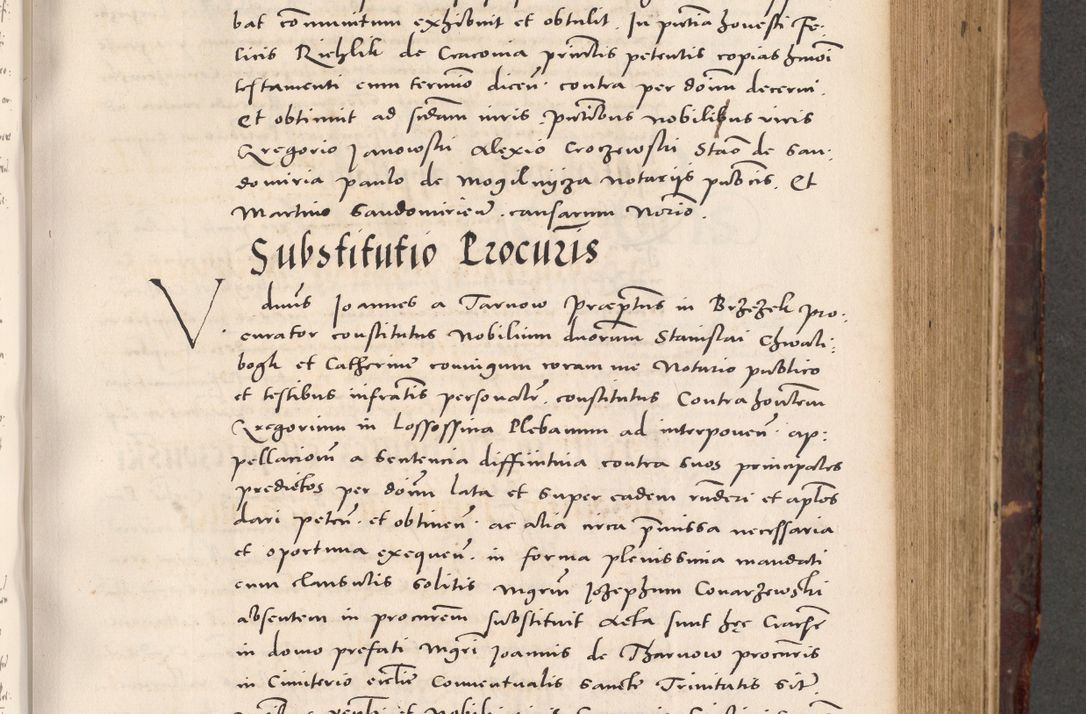 bat co͞mmuntum exhibuit et obtulit. In pn̄tia honesti Fe-
licis Riehlik de Cracouia principalis petentis copias hm̄oi
testamenti cum termīo dicen̄. contra per dōm decerni.
Et obtinuit ad fidam iuris. pn̄tibus nobilibus viris
Gregorio Janowski Alexio Croczewski Stan̄ de San-
domiria paulo de Mogilnycza notarijs publicis. Et
Martino Sandomirien̄. causarum Notrio.
Substitutio Procuris
Vdnus Joannes a Tarnow Praeptus in Brzezek pro-
curator constitutus Nobilium duorum Stanislai Chwali-
bogk et Catherine coniugum coram me Notario publico
et testibus infrātis personalr̄. constitutus Contra hontem
Gregorium in Lossossina Plebanum ad interponen̄. ap-
pellacionem a sentencia diffinitiua contra suos principales
predictos per dōm lata et super eadem run̄deri et aptos
dari peten̄. et obtinen̄. ac alia circa p̄missa necessaria
et oportuna exequen̄. in forma plenissima mandati
cum clausulis solitis mgrm Jozephum Conarzewski
absentem in procurem̄ substituit Acta sunt hęc Cracīe
in domo prefati mgri Joannis de Tharnow procuris
in Cimiterio ecclie Conuentualis Sancte Trinitatis sit̄.